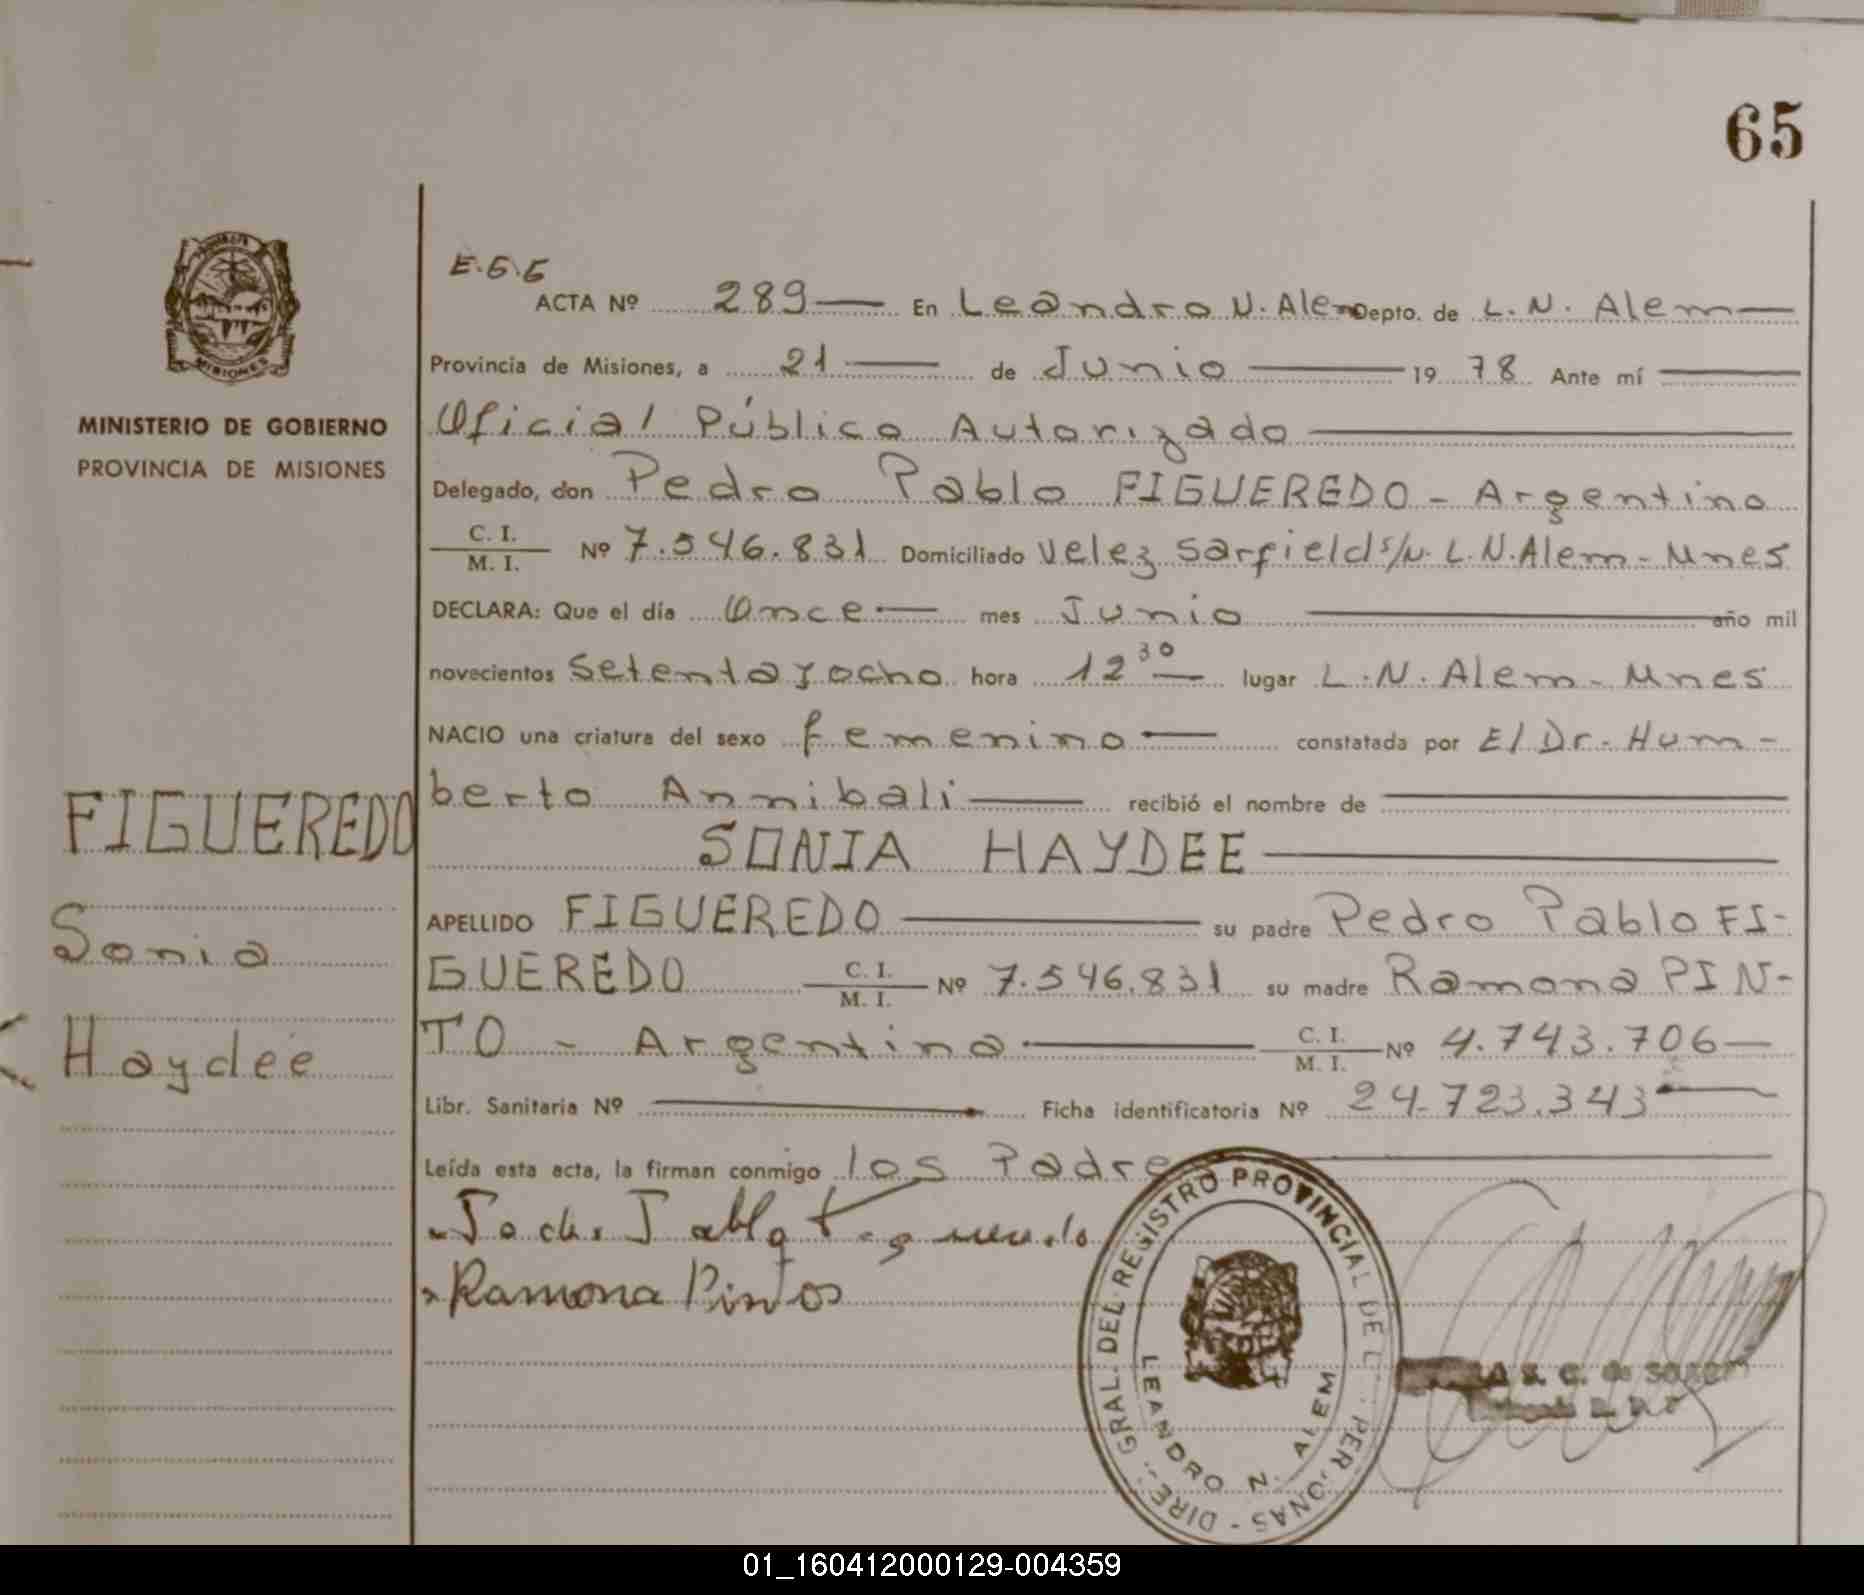 65
E.G.G
ACTA Nº 289 En Leandro N. Alem Depto. de L. N. Alem
Provincia de Misiones, a 21 de Junio 19 78 Ante mí
Oficial Público Autorizado
Delegado, don Pedro Pablo FIGUEREDO - Argentino
C. I.
M. I. Nº 7.546.831 Domiciliado Velez Sarfield s/n. L.N.Alem - Mnes
DECLARA: Que el día Once mes Junio año mil
novecientos Setenta y ocho hora 12 30 lugar L. N. Alem - Mnes
NACIO una criatura del sexo femenino constatada por El Dr. Hum-
berto Annibali recibió el nombre de
SONIA HAYDEE
APELLIDO FIGUEREDO su padre Pedro Pablo FI-
GUEREDO C. I. M. I. Nº 7.546.831 su madre Ramona PIN-
TO - Argentina C. I. M. I. Nº 4.743.706
Libr. Sanitaria Nº Ficha identificatoria Nº 24.723.343
Leída esta acta, la firman conmigo los Padre
Ramona Pintos
MINISTERIO DE GOBIERNO
PROVINCIA DE MISIONES
MISIONES
FIGUEREDO
Sonia
Haydeé
DIREC. GRAL. DEL REGISTRO PROVINCIAL DE L PERSONAS -
LEANDRO N. ALEM
S. C. de
01_160412000129-004359